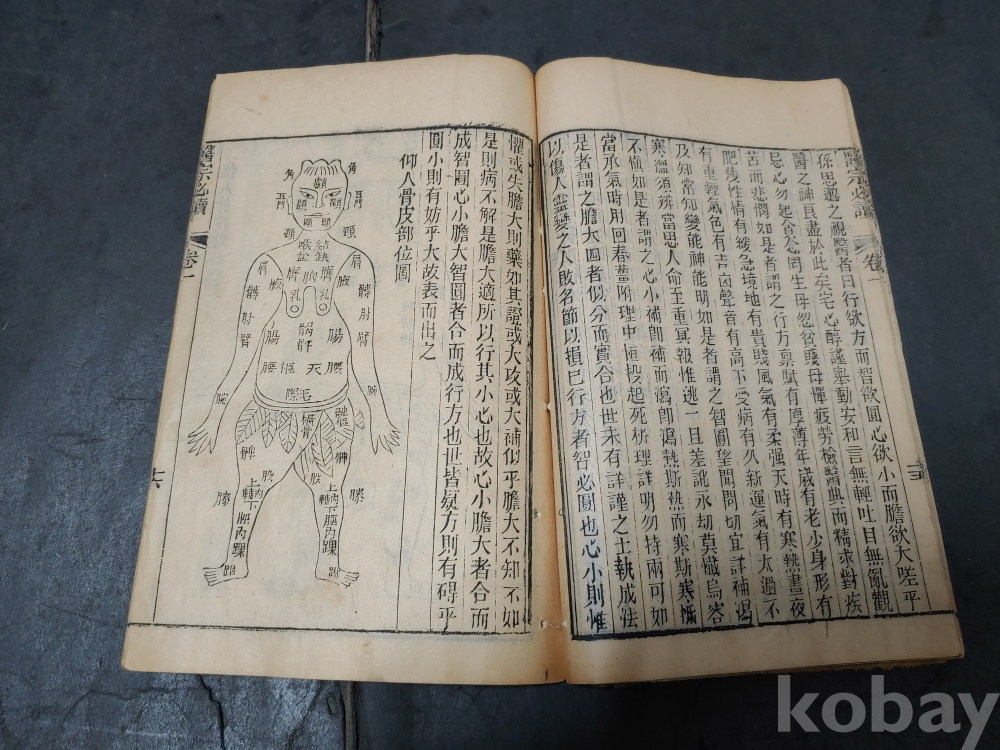 醫宗必讀
卷一
孫思邈之祝醫者曰行欲方而智欲圓心欲小而膽欲大嗟乎
醫之神良盡於此矣宅心醇謹舉動安和言無輕吐目無亂觀
忌心勿起貪念罔生毋忽貧賤毋憚疲勞檢醫典而精求對疾
苦而悲憫如是者謂之行方禀賦有厚薄年歲有老少身形有
肥瘦性情有緩急境地有貴賤風氣有柔强天時有寒熱晝夜
有重輕氣色有吉凶聲音有高下受病有久新運氣有太過不
及知常知變能神能明如是者謂之智圓望聞問切宜詳補瀉
寒溫須辨當思人命至重冥報惟逃一旦差訛永劫莫懺烏容
不愼如是者謂之心小補卽補而瀉卽瀉熱斯熱而寒斯寒抵
當承氣時用回春薑附理中恒投起死析理詳明勿持兩可如
是者謂之膽大四者似分而實合也世未有詳謹之士執成法
以傷人靈變之人敗名節以損已行方者智必圓也心小則惟
懼或失膽大則藥如其證或大攻或大補似乎膽大不知不如
是則病不解是膽大適所以行其小心也故心小膽大者合而
成智圓心小膽大智圓者合而成行方也世皆疑方則有碍乎
圓小則有妨乎大故表而出之
仰人骨皮部位圖
角
角
耳門
耳門
頸
頸
結喉
缺盆
肩
肩
胸
腋
乳
乳
髆
髆
肘
肘
臂
臂
𩩲骬
腸
腸
腰
腰
天樞
毛際
腕
腕
橫骨
髀
髀
股
股
膝
膝
脛
脛
內踝
內踝
跗
跗
醫宗必讀
卷一
十六
kobay